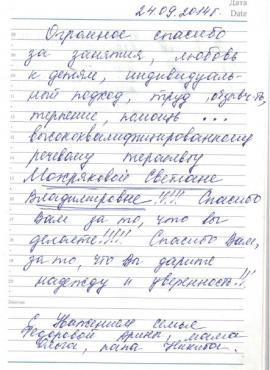 Дата
Date
24.09.2014г.
Огромное спасибо
за занятия, любовь
к детям, индивидуаль-
ный подход, труд,
терпение, помощь ...
высококвалифицированному
речевому терапевту
Мокряковой Светлане
Владимировне!!!! Спасибо
Вам за то, что вы
делаете!!!! Спасибо Вам,
за то, что Вы дарите
надежду и уверенность!!!
С Уважением семья
Федоровой Арины, мама
Ольга, папа Никита.